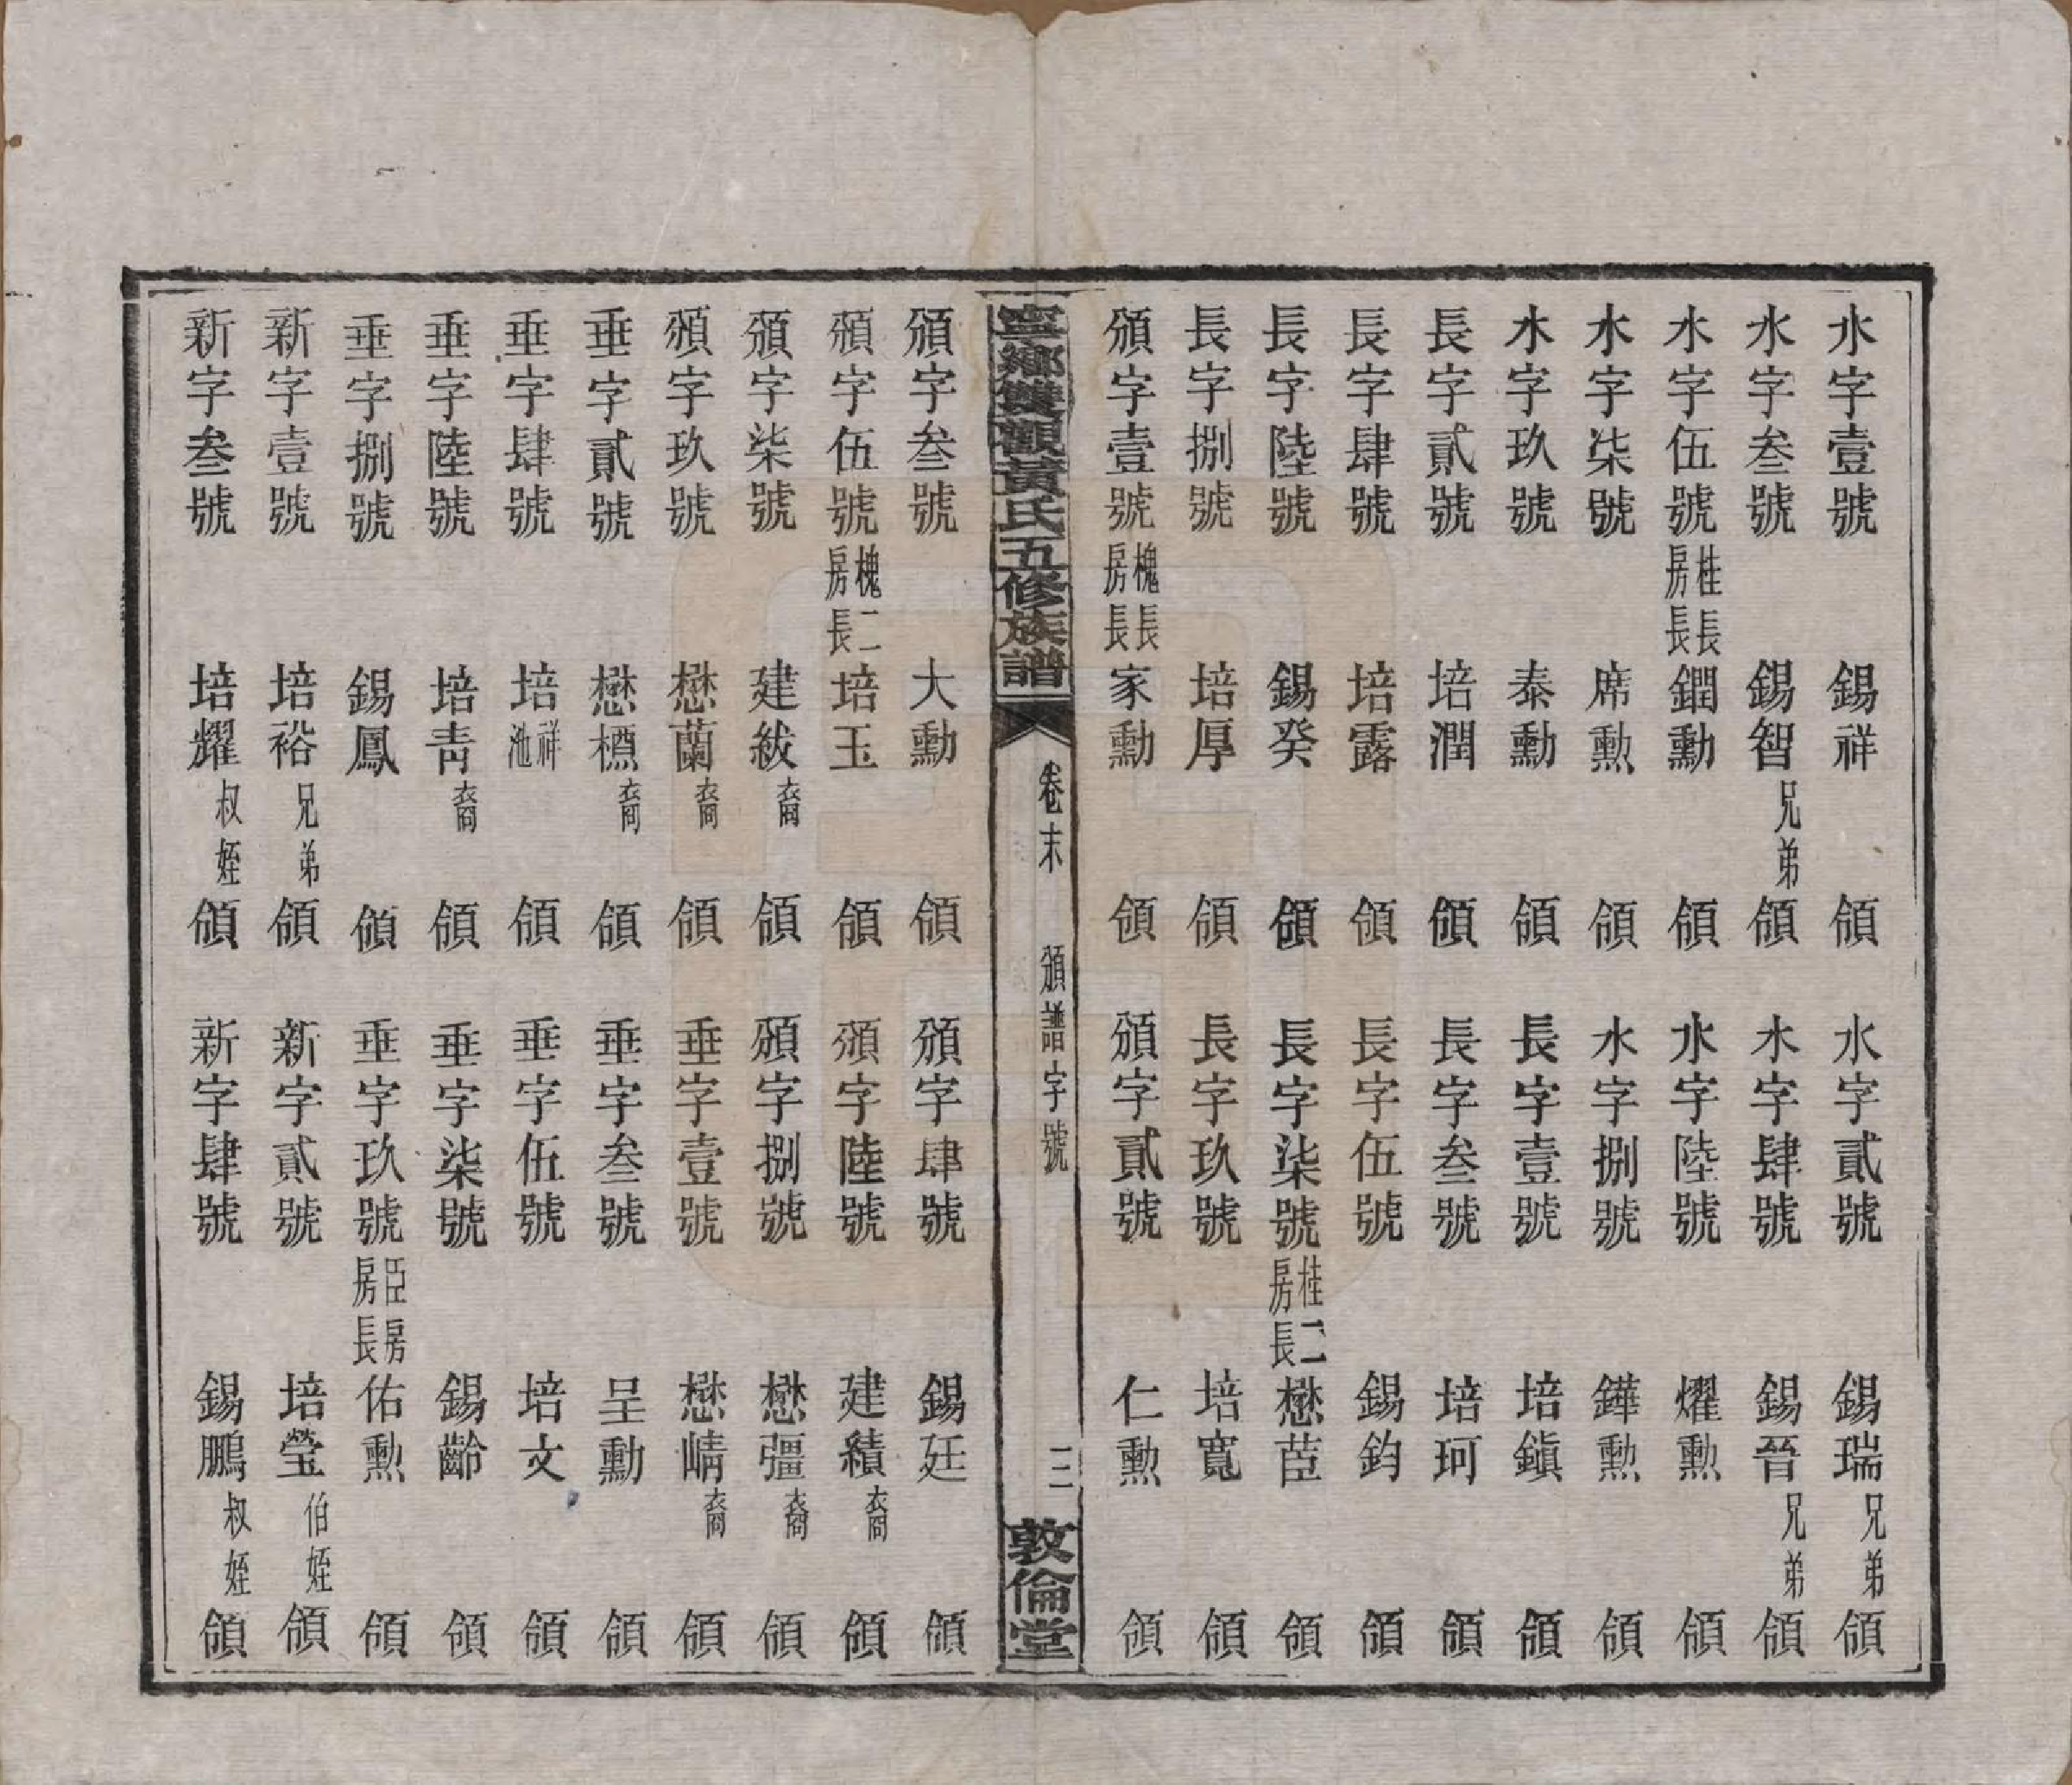 水字壹號　錫祥　領　水字貳號　錫瑞兄弟　領
水字叁號　錫智兄弟　領　水字肆號　錫晉兄弟　領
水字伍號桂長房長　鐗勳　領　水字陸號　燿勳　領
水字柒號　席勳　領　水字捌號　鏵勳　領
水字玖號　泰勳　領　長字壹號　培鎭　領
長字貳號　培潤　領　長字叁號　培珂　領
長字肆號　培露　領　長字伍號　錫鈞　領
長字陸號　錫癸　領　長字柒號桂二房長　懋茝　領
長字捌號　培厚　領　長字玖號　培寬　領
頒字壹號槐長房長　家勳　領　頒字貳號　仁勳　領
寧鄉雙觀黃氏五修族譜　卷末　頒譜字號　三　敦倫堂
頒字叁號　大勳　領　頒字肆號　錫廷　領
頒字伍號槐二房長　培玉　領　頒字陸號　建績裔　領
頒字柒號　建紱裔　領　頒字捌號　懋彊裔　領
頒字玖號　懋蘭裔　領　垂字壹號　懋崝裔　領
垂字貳號　懋檟裔　領　垂字叁號　呈勳　領
垂字肆號　培祥池　領　垂字伍號　培文　領
垂字陸號　培靑裔　領　垂字柒號　錫齡　領
垂字捌號　錫鳳　領　垂字玖號臣房房長　佑勳　領
新字壹號　培裕兄弟　領　新字貳號　培瑩伯姪　領
新字叁號　培耀叔姪　領　新字肆號　錫鵬叔姪　領